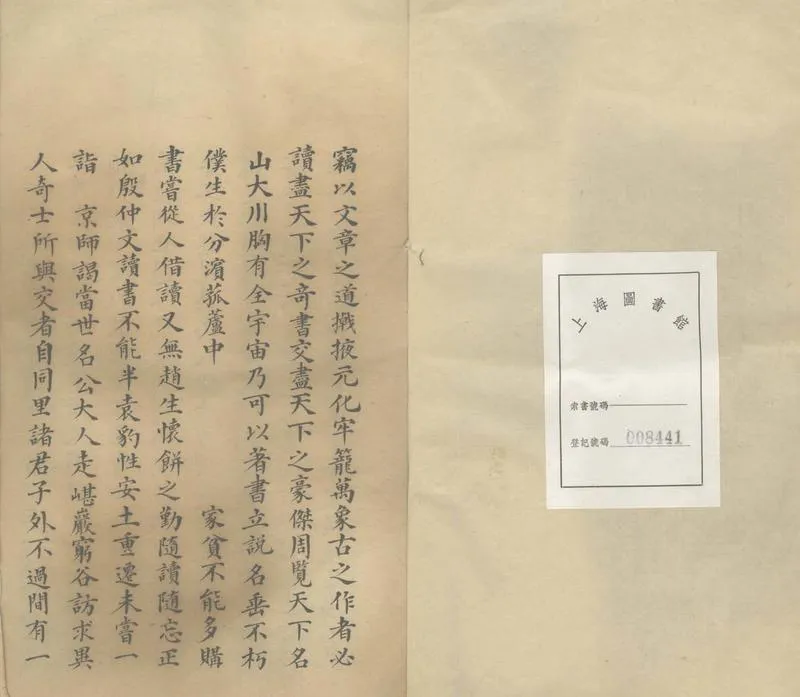 上海圖書館
索書號碼
登記號碼 008441
竊以文章之道掖元化牢籠萬象古之作者必
讀盡天下之奇書交盡天下之豪傑周覽天下名
山大川胸有全宇宙乃可以著書立説名垂不朽
僕生於分濱菰蘆中 家貧不能多購
書嘗從人借讀又無趙生懷餅之勤隨讀隨忘正
如殷仲文讀書不能半袁豹性安土重遷未嘗一
詣 京師謁當世名公大人走嵁巖窮谷訪求異
人奇士所與交者自同里諸君子外不過間有一